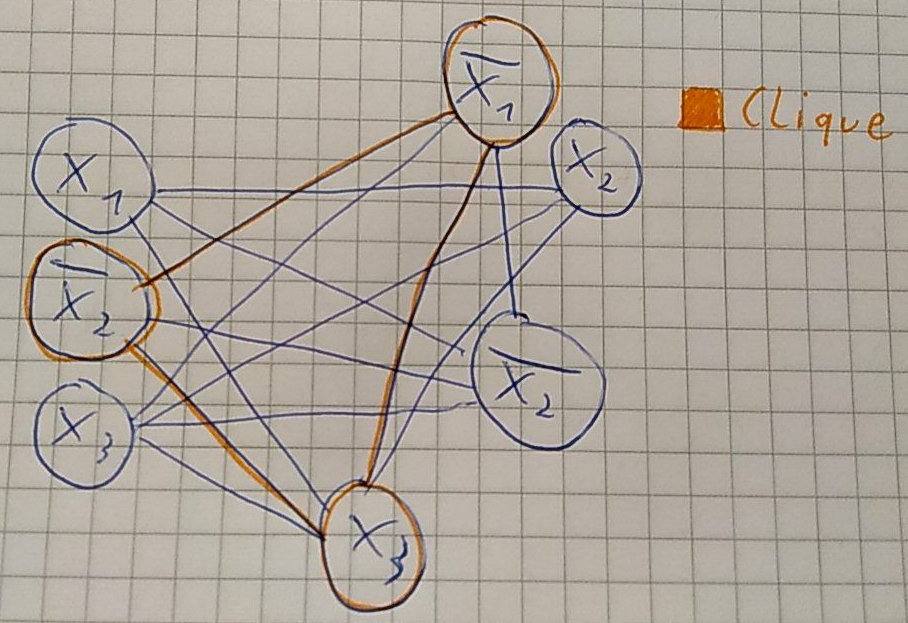 X̅₁
Clique
X₂
X₁
X̅₂
X̅₂
X₃
X₃